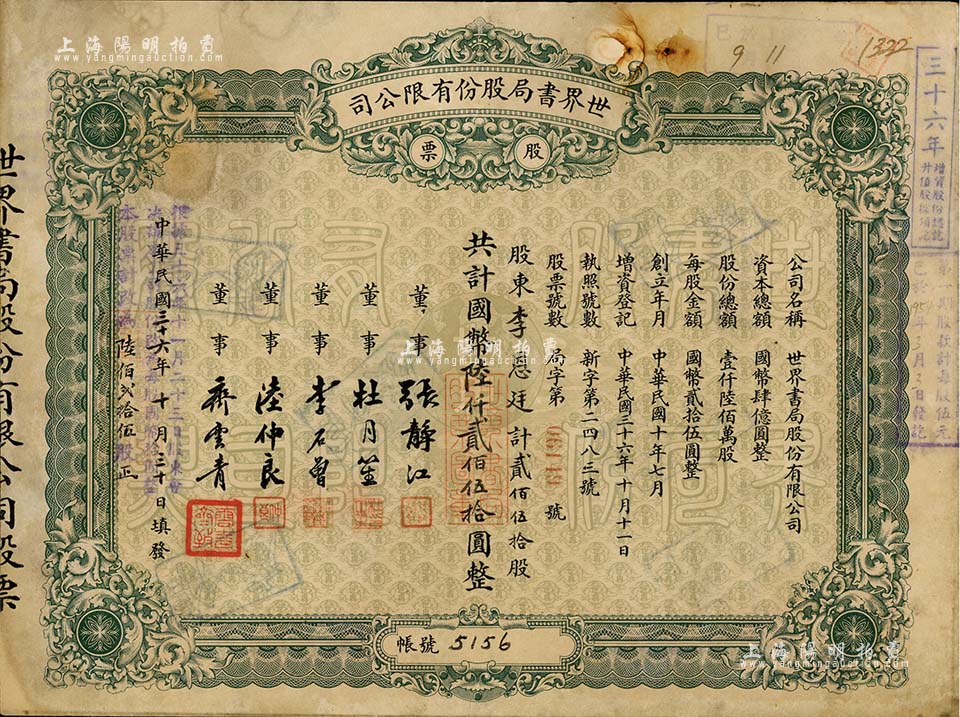 上海陽明拍賣
www.yangmingauction.com
9 11
1322
世界書局股份有限公司
股票
三十六年
公司名稱 世界書局股份有限公司
資本總額 國幣肆億圓整
股份總額 壹仟陸佰萬股
每股金額 國幣貳拾伍圓整
創立年月 中華民國十年七月
增資登記 中華民國三十六年十月十一日
執照號數 新字第二四八三號
股票號數 局字第 號
股東李恩廷計貳佰伍拾股
共計國幣陸仟貳佰伍拾圓整
董事 張靜江
董事 杜月笙
董事 李石曾
董事 陸仲良
董事 齊雲青
中華民國三十六年十月三十日填發
本股票計改為陸佰貳拾伍股正
世界書局股份有限公司股票
帳號 5156
上海陽明拍賣
www.yangmingauction.com